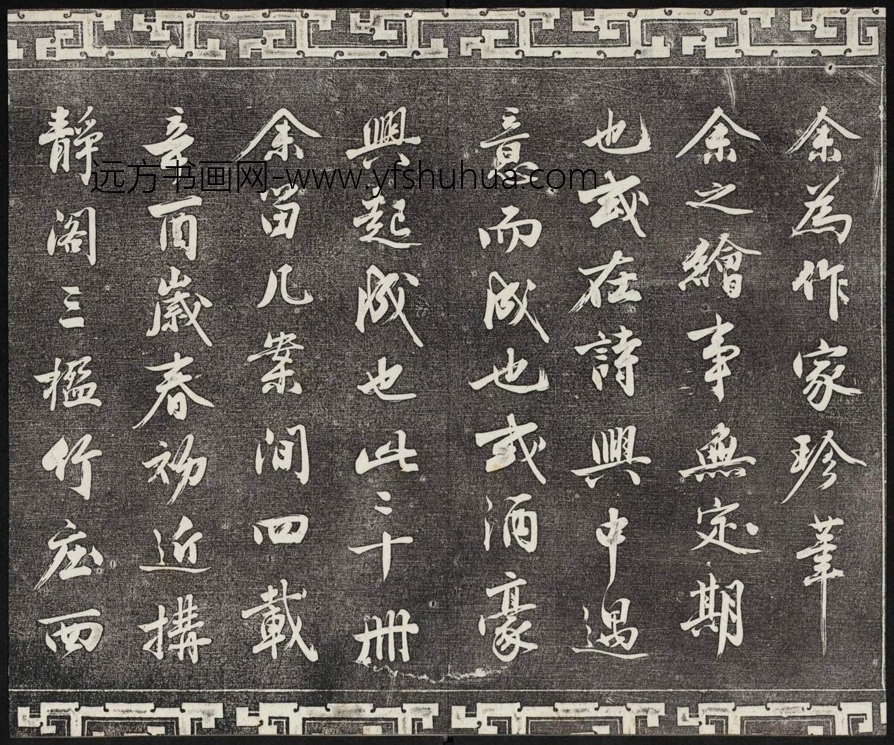 余為作家珍葦
余之繪事無定期
也或在詩興中遇
意而成也或酒豪
興起成也此二十冊
余留几案間四載
辛酉歲春初近構
靜閣三楹竹庄西
远方书画网-www.yfshuhua.com